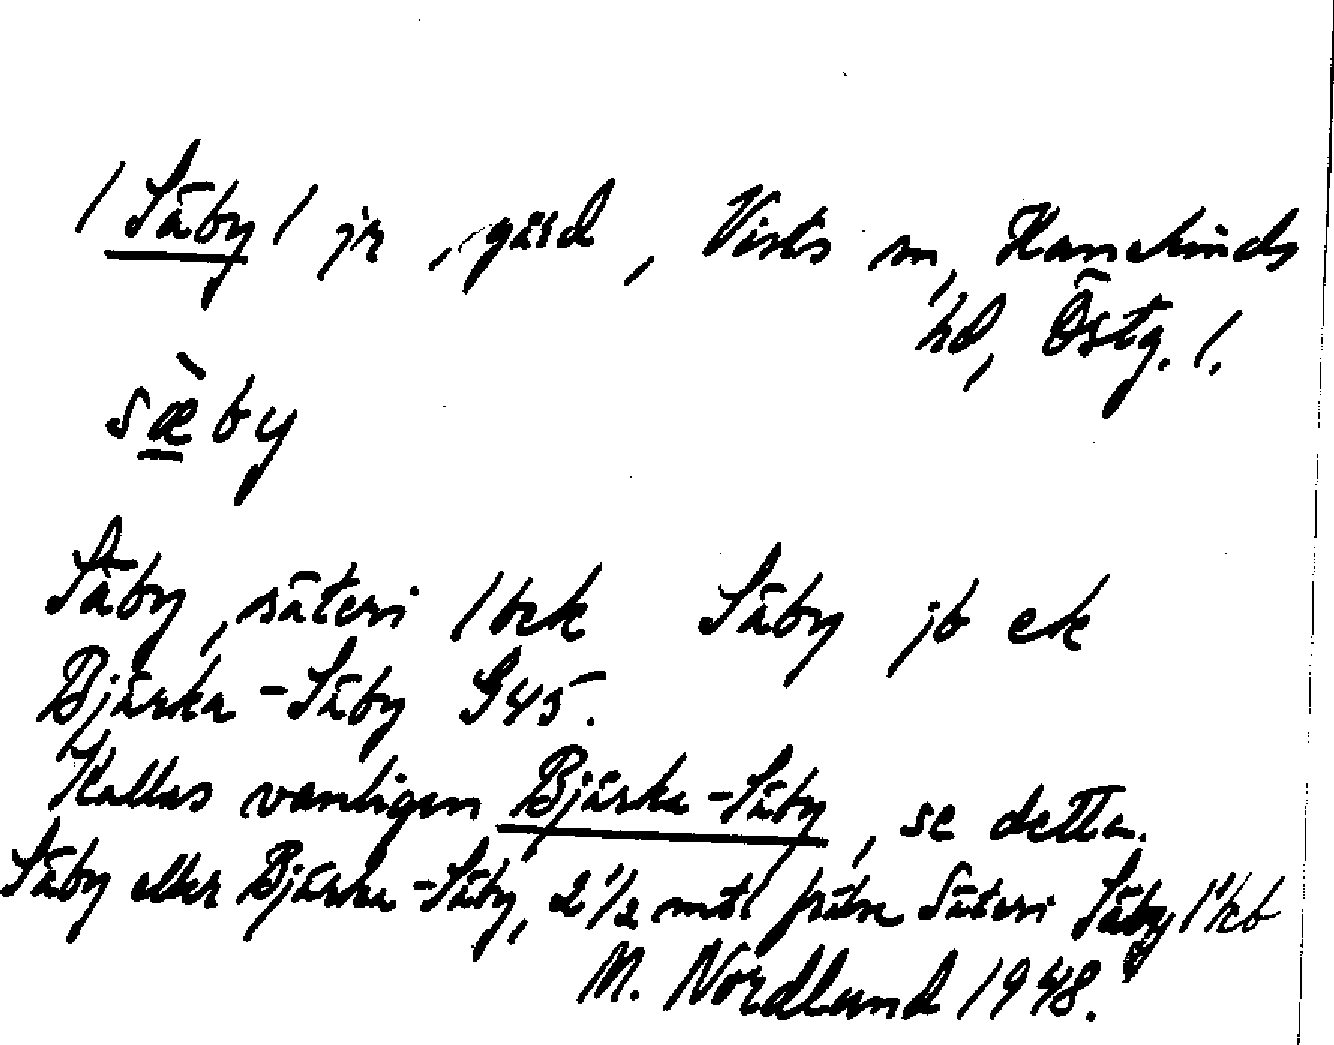 /Säby/ jr, gård, Vists sn, Hanekinds
hd, Östg. l.
sæ̀by
Säby, säteri /bek Säby jb ek
Bjärka-Säby G45.
Kallas vanligen Bjärka-Säby, se detta.
Säby eller Bjärka-Säby, 2 1/2 mtl frälse Säteri Säby
M. Nordlund 1948.